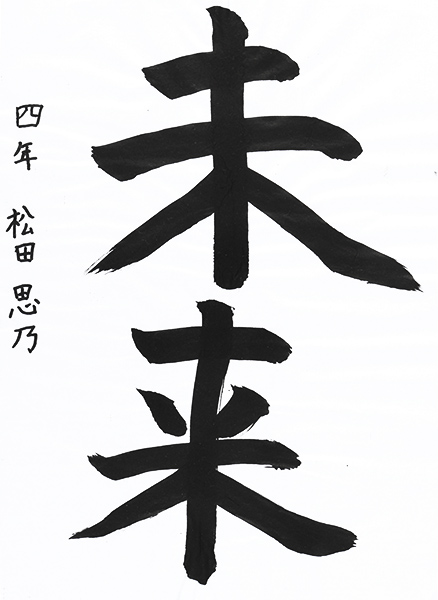 未来
四年 松田思乃